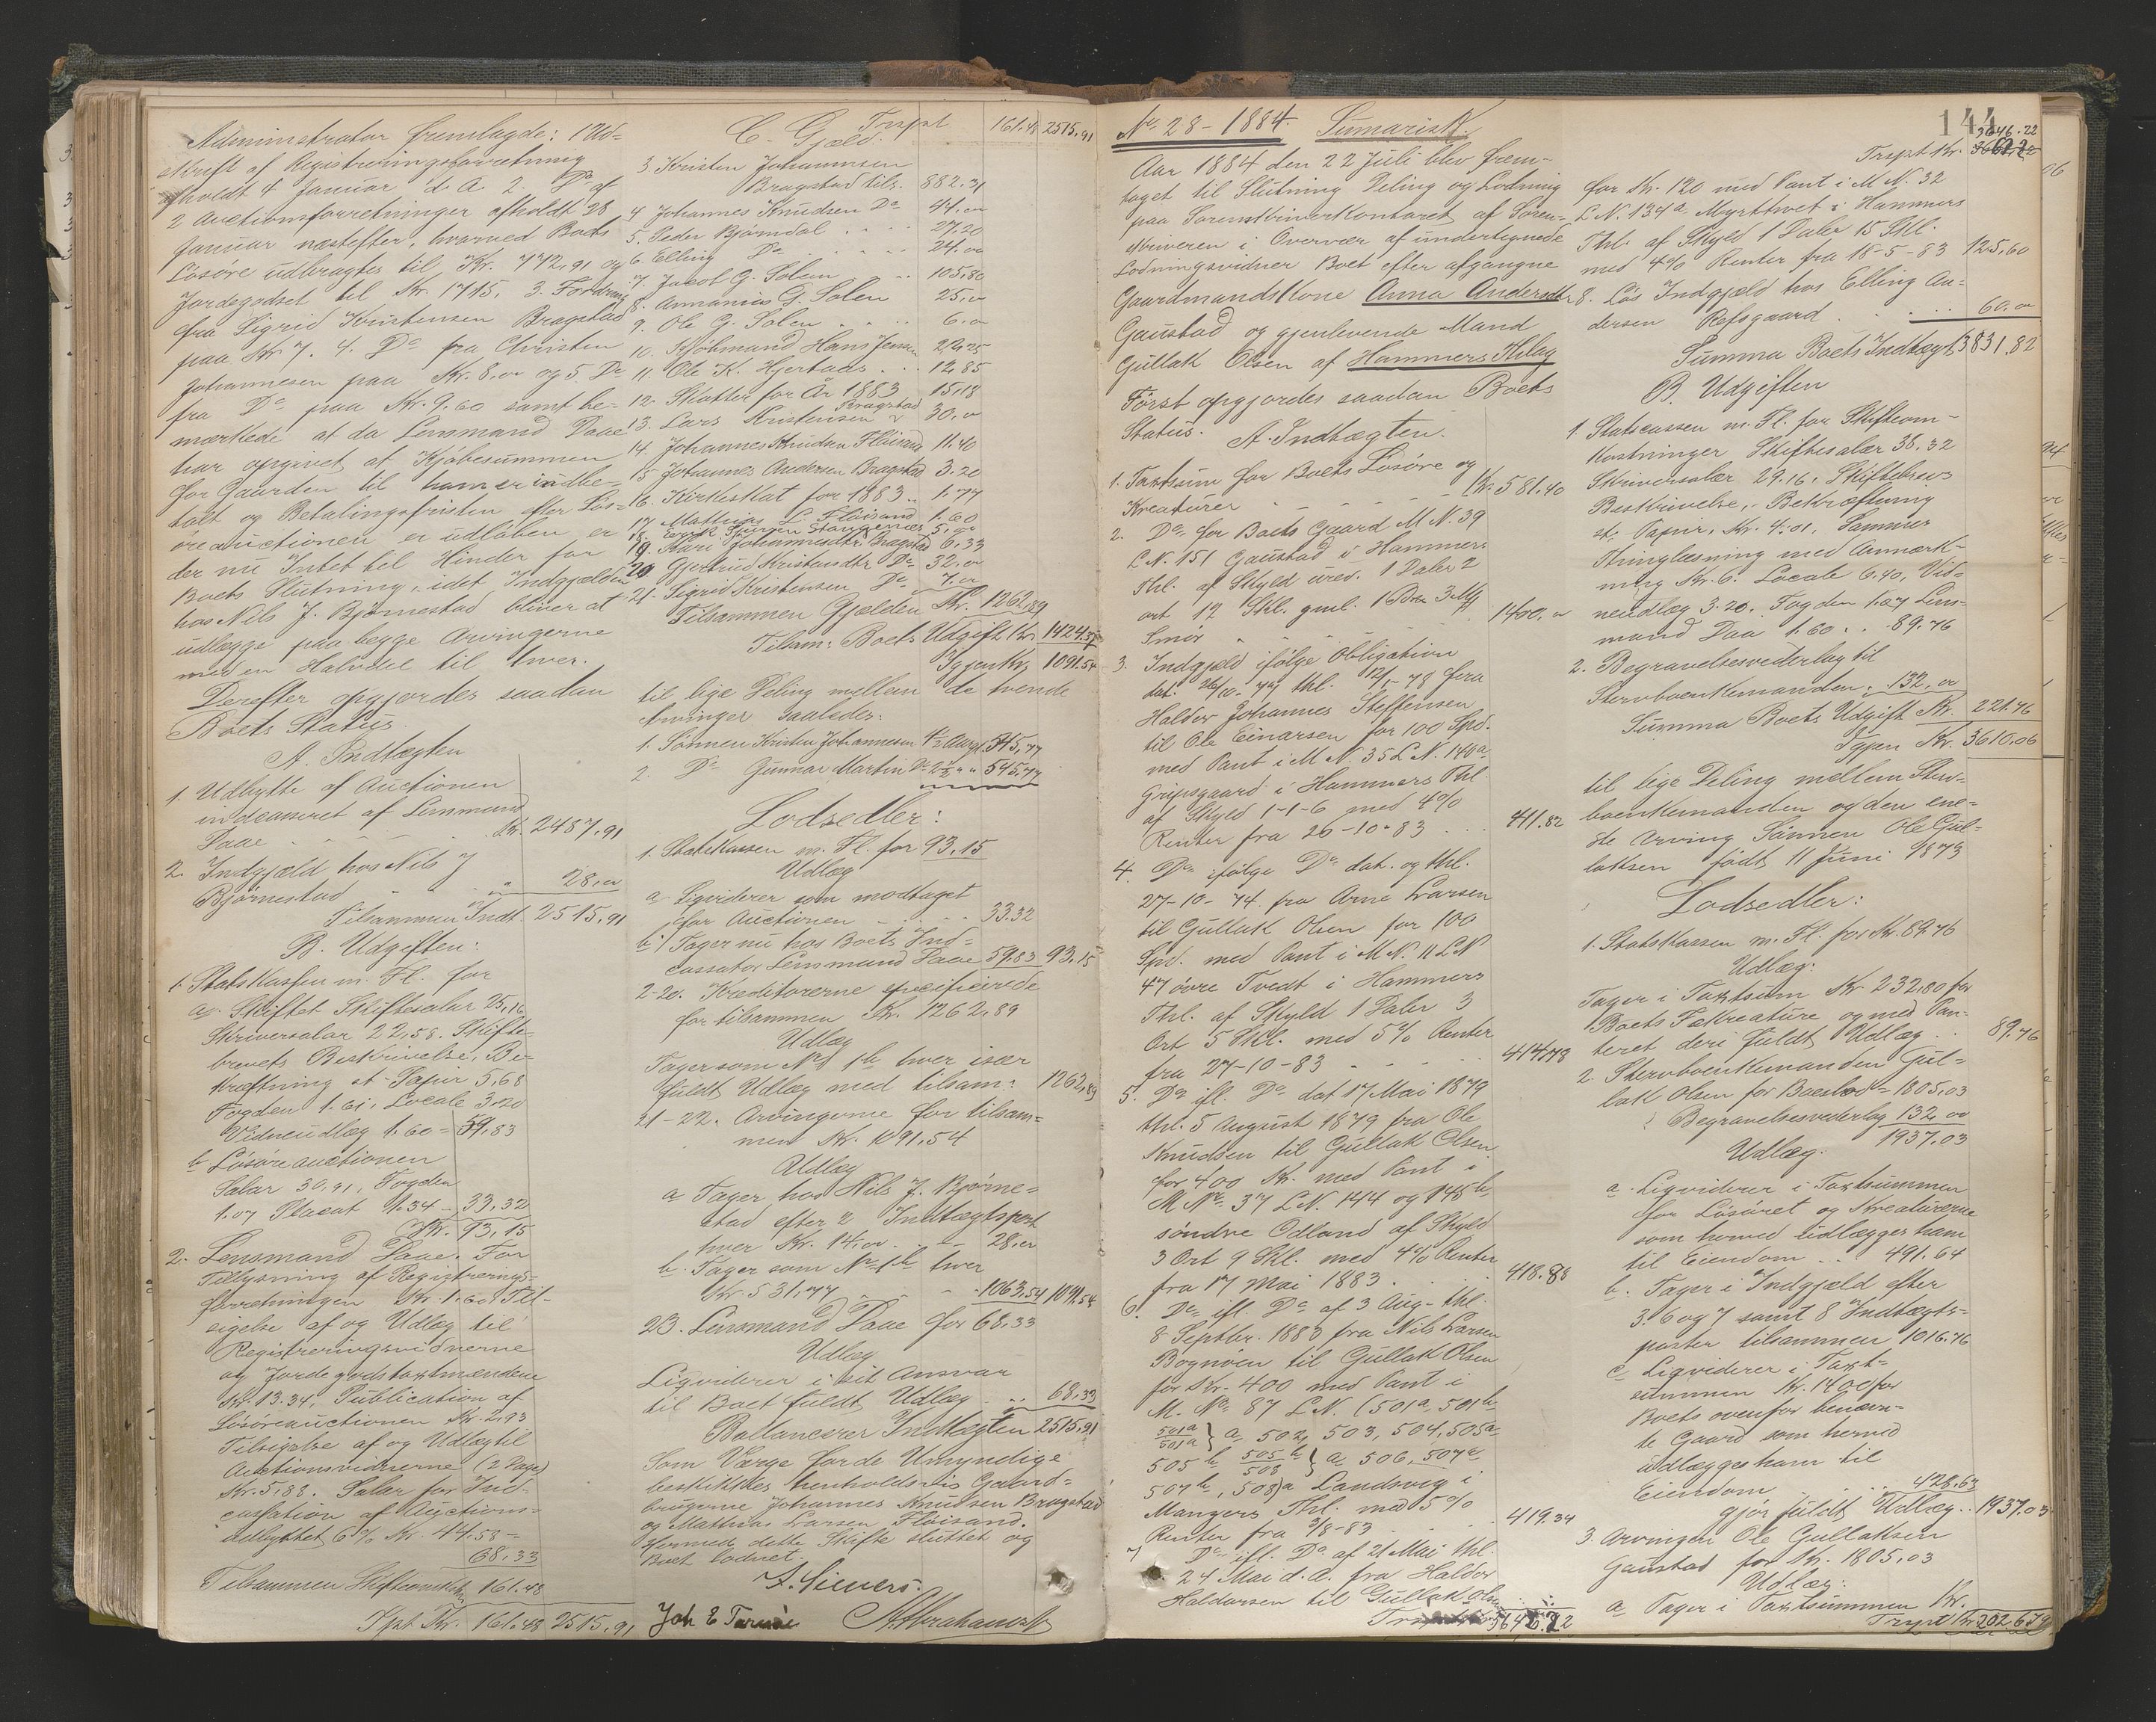 Administrator fremlagde: 1 Ud-
skrift af Registreringsforretning
afholdt 4 Januar d. A. 2. Do af
2 Auctionsforretninger afholdt 28
Januar næstefter, hvorved Boets
Løsøre udbragtes til Kr. 772,91 og
Jordegodset til Kr. 1715, 3. Fordring
fra Sigrid Kristensen Bragstad
paa Kr 7. 4. Do fra Christen
Johannesen paa Kr. 8,00 og 5 Do
fra Do paa Kr. 9.60 samt be-
mærkede at da Lensmand Daae
har opgivet at Kjøbesummen
for Gaarden til ham er indbe-
talt og Betalingsfristen efter Løs-
øreauctionen er udløben er
der nu Intet til Hinder for
Boets Slutning, idet Indgjælden
hos Nils J. Bjørnestad bliver at
udlægge paa begge Arvingerne
med en Halvdel til hver.
Derefter opgjordes saadan
Boets Status.
A. Indtægten
1. Udbytte af Auctionen
indcasseret af Lensmand
Daae - - - Kr. 2487,91
2. Indgjæld hos Nils J
Bjørnestad - " 28,00
Tilsammen Indt. 2515,91
B. Udgiften:
1. Statskassen m. Fl. for
a. Skiftet Skiftesalar 25,16
Skriversalar 22,58. Skifte-
brevets Beskrivelse, Be-
kræftning st. Papir 5,68
Fogden 1.61, Locale 3,20
Vidneudlæg 1.60 = 59,83
b Løsøreauctionen
Salar 30,91, Fogden
1.07 Placat 1.34 - 33,32
Kr. 93,15
2. Lensmand Daae. For
Tillysning af Registrerings-
forretningen Kr. 1.60, Til-
sigelse af og Udlæg til
Registreringsvidnerne
og Jordegodstaxtmændene
Kr. 13.34, Publication af
Løsøreauctionen Kr. 2,93
Tilsigelse af og Udlæg til
Auctionsvidnerne (2 Dage)
Kr. 5,88. Salar for Ind-
cassation af Auctions-
udbyttet 6% Kr. 44.58 =
68,33
Tilsammen Skifteomk. 161.48
Tspt Kr. 161.48 2515,91
Trspt 161.48 2515,91
C. Gjæld.
3 Kristen Johannesen
Bragstad tils. 882.31
4 Johannes Knudsen Do 44,00
5. Peder Bjørndal . . . 27.20
6 Elling Do . . . 24,00
7. Jacob G. Solem . . 105,80
8. Annanias G. Solem 25,00
9. Ole G. Solem . . . 6,00
10. Kjøbmand Hans Jensen 22,25
11. Ole K. Hjertaas . . . 12,85
12. Skatter for År 1883 15,18
13. Lars Kristensen Bragstad 30,00
14. Johannes Knudsen Fløisand 11.40
15 Johannes Andersen Bragstad 3.20
16. Kirkeskat for 1883 .. 1.77
17 Mathias L. Fløisand 1.60
18. Stangenæs 5,00
19. Kari Johannesdtr Bragstad 6.33
20 Gjertrud Kristensdtr Do 32,00
21. Sigrid Kristensen Do 7,00
Tilsammen Gjælden Kr. 1262,89
Tilsam: Boets Udgift Kr. 1424.37
Igjen Kr. 1091.54
til lige Deling mellem de tvende
Arvinger saaledes:
1. Sønnen Kristen Johannesen 545,77
2. Do Gunnar Martin 545.77
Lodsedler:
1. Statskassen m. Fl. for 93.15
Udlæg
a Ligviderer som modtaget
for Auctionen - . . . 33.32
b Tager nu hos Boets Ind-
cassator Lensmand Daae 59.83 93.15
2-20. Kreditorerne specificerede
for tilsammen Kr. 1262,89
Udlæg
Tager som No 1 b hver især
fuldt Udlæg med tilsam: 1262,89
21-22. Arvingerne for tilsam-
men Kr. 1091.54
Udlæg
a Tager hos Nils J. Bjørne-
stad efter 2 Indtægtspost
hver Kr. 14,00 . . - 28,00
b. Tager som No 1 b hver
Kr. 531,77 - - 1063,54 1091,54
23. Lensmand Daae for 68,33
Udlæg
Ligviderer i sit Ansvar
til Boet fuldt Udlæg . . 68,33
Ballancerer Indtægten 2515,91
Som Værge for de Umyndige
beskikkedes henholdsvis Gaard-
brugerne Johannes Knudsen Bragstad
og Mathias Larsen Fløisand.
Hermed dette Skifte sluttet og
Boet lodnet.
A. Sievers.
Joh E A. Abrahamsen
No. 28 - 1884. Sumarisk.
Aar 1884 den 22 Juli blev frem-
taget til Slutning Deling og Lodning
paa Sorenskriverkontoret af Soren-
skriveren i Overvær af undertegnede
Lodningsvidner Boet efter afgangne
Gaardmandskone Anna Andersdtr
Gaustad og gjenlevende Mand
Gullak Olsen af Hammers Thlag
Først opgjordes saadan Boets
Status. A. Indtægten.
1. Taxtsum for Boets Løsøre og
Kreaturer - - - - Kr. 581.40
2. Do for Boets Gaard M N. 39
L N. 151 Gaustad i Hammers
Thl. af Skyld ured. 1 Daler 2
ort 12 Skl. gml. 1 3 Mk
Smør " " " " 1400,00
3. Indgjæld ifølge Obligation
dat. 26/10-77 thl. 12/1-78 fra
Haldor Johannes Steffensen
til Ole Einarsen for 100 Spd.
med Pant i M N. 35 L N. 140a
Gripsgaard i Hammers Thl.
af Skyld 1-1-6 med 4%
Renter fra 26-10-83 . . . 411.82
4. Do ifølge Do dat. og thl.
27-10-74 fra Arne Larsen
til Gullak Olsen for 100
Spd. med Pant i M N. 11 L N
47 øvre Tvedt i Hammers
Thl. af Skyld 1 Daler 3
Ort 5 Skl. med 5% Renter
fra 27-10-83 - - - 414,78
5. Do ifl. Do dat 17 Mai 1879
thl. 5 August 1879 fra Ole
Knudsen til Gullak Olsen
for 400 Kr. med Pant i
M No. 37 L N. 144 og 145 b
søndre Odland af Skyld
3 Ort 9 Skl. med 4% Renter
fra 17 Mai 1883 . . . 418.88
6. Do ifl. Do af 3 Aug- thl.
8 Septbr. 1883 fra Nils Larsen
Bognøen til Gullak Olsen
for Kr. 400 med Pant i
M. No. 87 L N. (501a, 501b
501a/501a } a 502, 503, 504, 505a
505 b 505b/508 } a 506, 507a
507b, 508) a Landsvig i
Mangers Thl. med 5%
Renter fra 3/8-83 . . . 419.34
7 Do ifl. Do af 21 Mai thl.
24 Mai d. A. fra Haldor
Haldorsen til Gullak Olsen
144
3646.22
Trspt Kr.
for Kr. 120 med Pant i M N. 32
L N. 134a, Myrthvet i Hammers
Thl. af Skyld 1 Daler 15 Skl.
med 4% Renter fra 18-5-83 125,60
8. Løs Indgjæld hos Elling An-
dersen Refsgaard . . . . 60,00
Summa Boets Indtægt 3831,82
B. Udgiften
1. Statscassen m. Fl. for Skifteom-
kostninger Skiftesalær 38.32
Skriversalær 29.16, Skiftebrevs
Beskrivelse, Bekræftning
st. Papir, Kr. 4.01, Sammes
Thinglæsning med Anmærk-
ning Kr. 6. Locale 6.40, Vid-
neudlæg 3.20. Fogden 1.07 Lens-
mand Daa 1.60 . . 89.76
2. Begravelsesvederlag til
Stervboenkemanden . 132,00
Summa Boets Udgift Kr. 221.76
Igjen Kr. 3610,06
til lige Deling mellem Sterv-
boenkemanden og den ene-
ste Arving Sønnen Ole Gul-
laksen født 11 Juni 1873
Lodsedler:
1. Statskassen m. Fl. for Kr. 89.76
Udlæg.
Tager i Taxtsum Kr. 232,80 for
Boets Fækreature og med Pan-
teret deri fuldt Udlæg . . 89.76
2. Stervboenkemanden Gul-
lak Olsen for Boeslod = 1805,03
Begravelsesvederlag 132,00
1937,03
Udlæg.
a. Ligviderer i Taxtsummen
for Løsøret og Kreaturerne
som herved udlægges ham
til Eiendom . . 491.64
b. Tager i Indgjæld efter
3. 6 og 7 samt 8 Indtægts-
poster tilsammen 1016.76
c Ligviderer i Taxt-
summen Kr. 1400 for
Boets ovenfor benævn-
te Gaard som herved
udlægges ham til
Eiendom . . . 428,63
gjør fuldt Udlæg . . 1937.03
3. Arvingen Ole Gullaksen
Gaustad for Kr. 1805,03
Udlæg:
a Tager i Taxtsummen Kr.